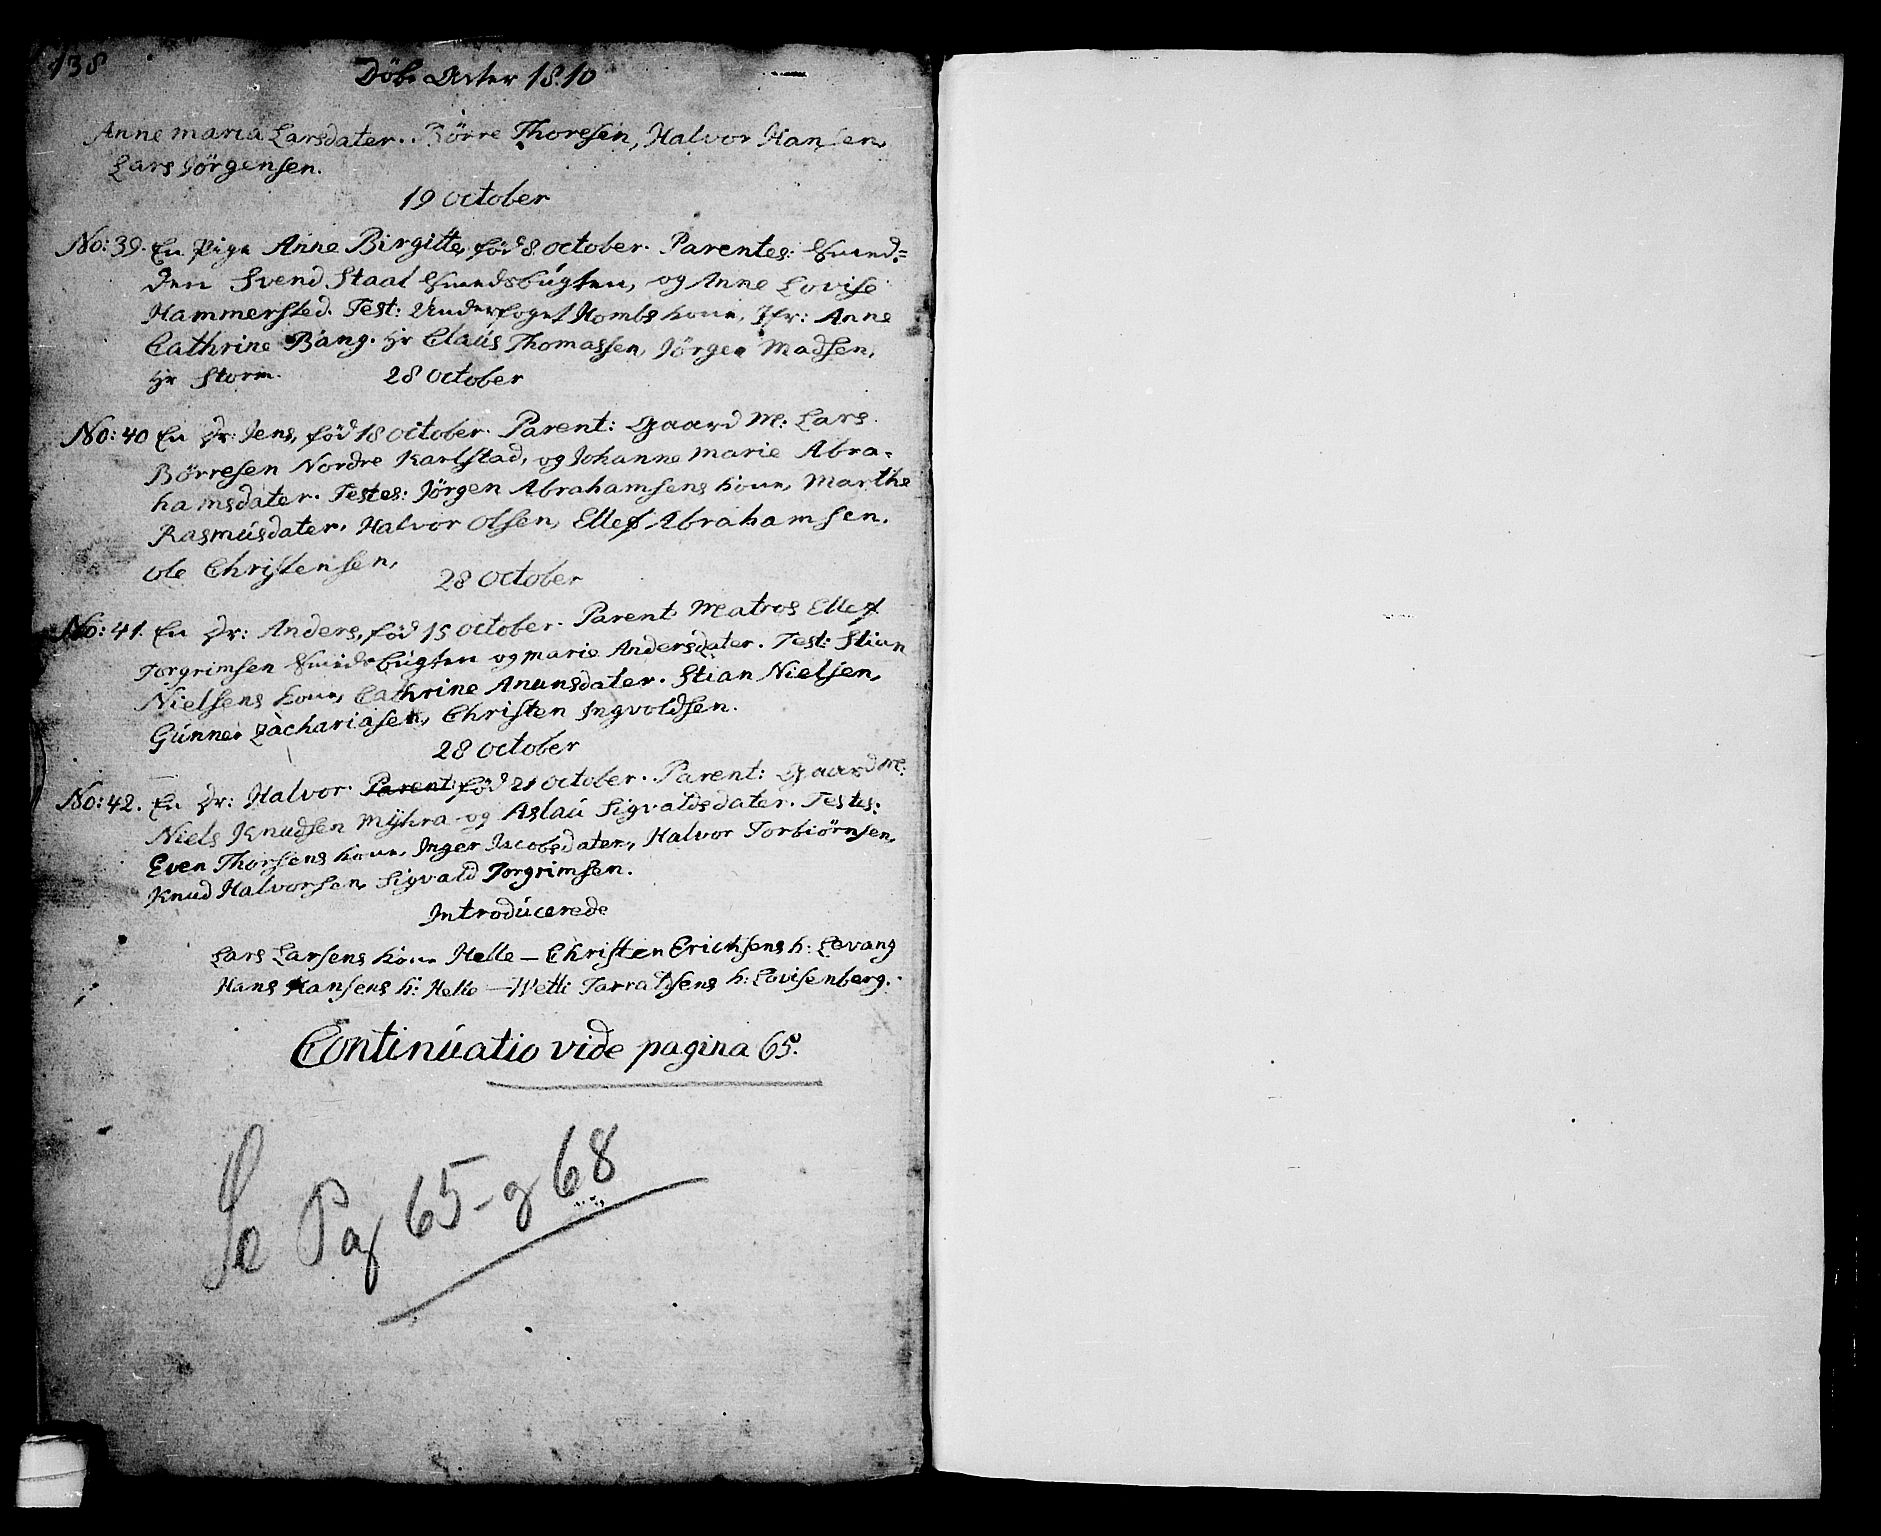 138
Döbe Acter 1810
Anne maria Larsdater. Börre Thoresen, Halvor Hansen,
Lars Jörgensen.
19 October
No: 39. En Pige Anne Birgitte, föd 8 October. Parentes: Smed-
den Svend Staal Smedsbugten, og Anne Lovise
Hammersted. Test: Underfoget Hombs kone, Jfr: Anne
Cathrine Bang. Hr Claus Thomassen, Jörgen Madsen,
Hr Storm.
28 October
No: 40 En Dr: Jens, föd 18 October. Parent: Gaard M: Lars
Börresen Nordre Karlstad, og Johanne Marie Abra-
hamsdater. Testes: Jörgen Abrahamsens kone, Marthe
Rasmusdater. Halvor Olsen, Ellef Abrahamsen.
Ole Christensen,
28 October
No: 41. En Dr: Anders, föd 15 October. Parent Matros Ellef
Torgrimsen Smedsbugten og marie Andersdater. Test: Stian
Nielsens kone, Cathrine Anunsdater. Stian Nielsen,
Gunner Zachariasen, Christen Ingvoldsen.
28 October
No: 42. En Dr: Halvor. Parent föd 21 October. Parent: Gaard M:
Niels Knudsen Myhra og Aslau Sigvaldsdater. Testes:
Even Thorsens kone, Inger Jacobsdater, Halvor Torbiörnsen,
Knud Halvorsen, Sigvald Torgrimsen.
Introducerede
Lars Larsens kone Helle — Christen Erichsens h: Levang
Hans Hansens h: Helle — Wetti Tarraldsens h: Lovisenberg.
Continuatio vide pagina 65.
Se Pag 65 - og 68